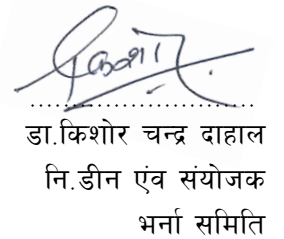 किशोर
..............................
डा.किशोर चन्द्र दाहाल
नि.डीन एंव संयोजक
भर्ना समिति